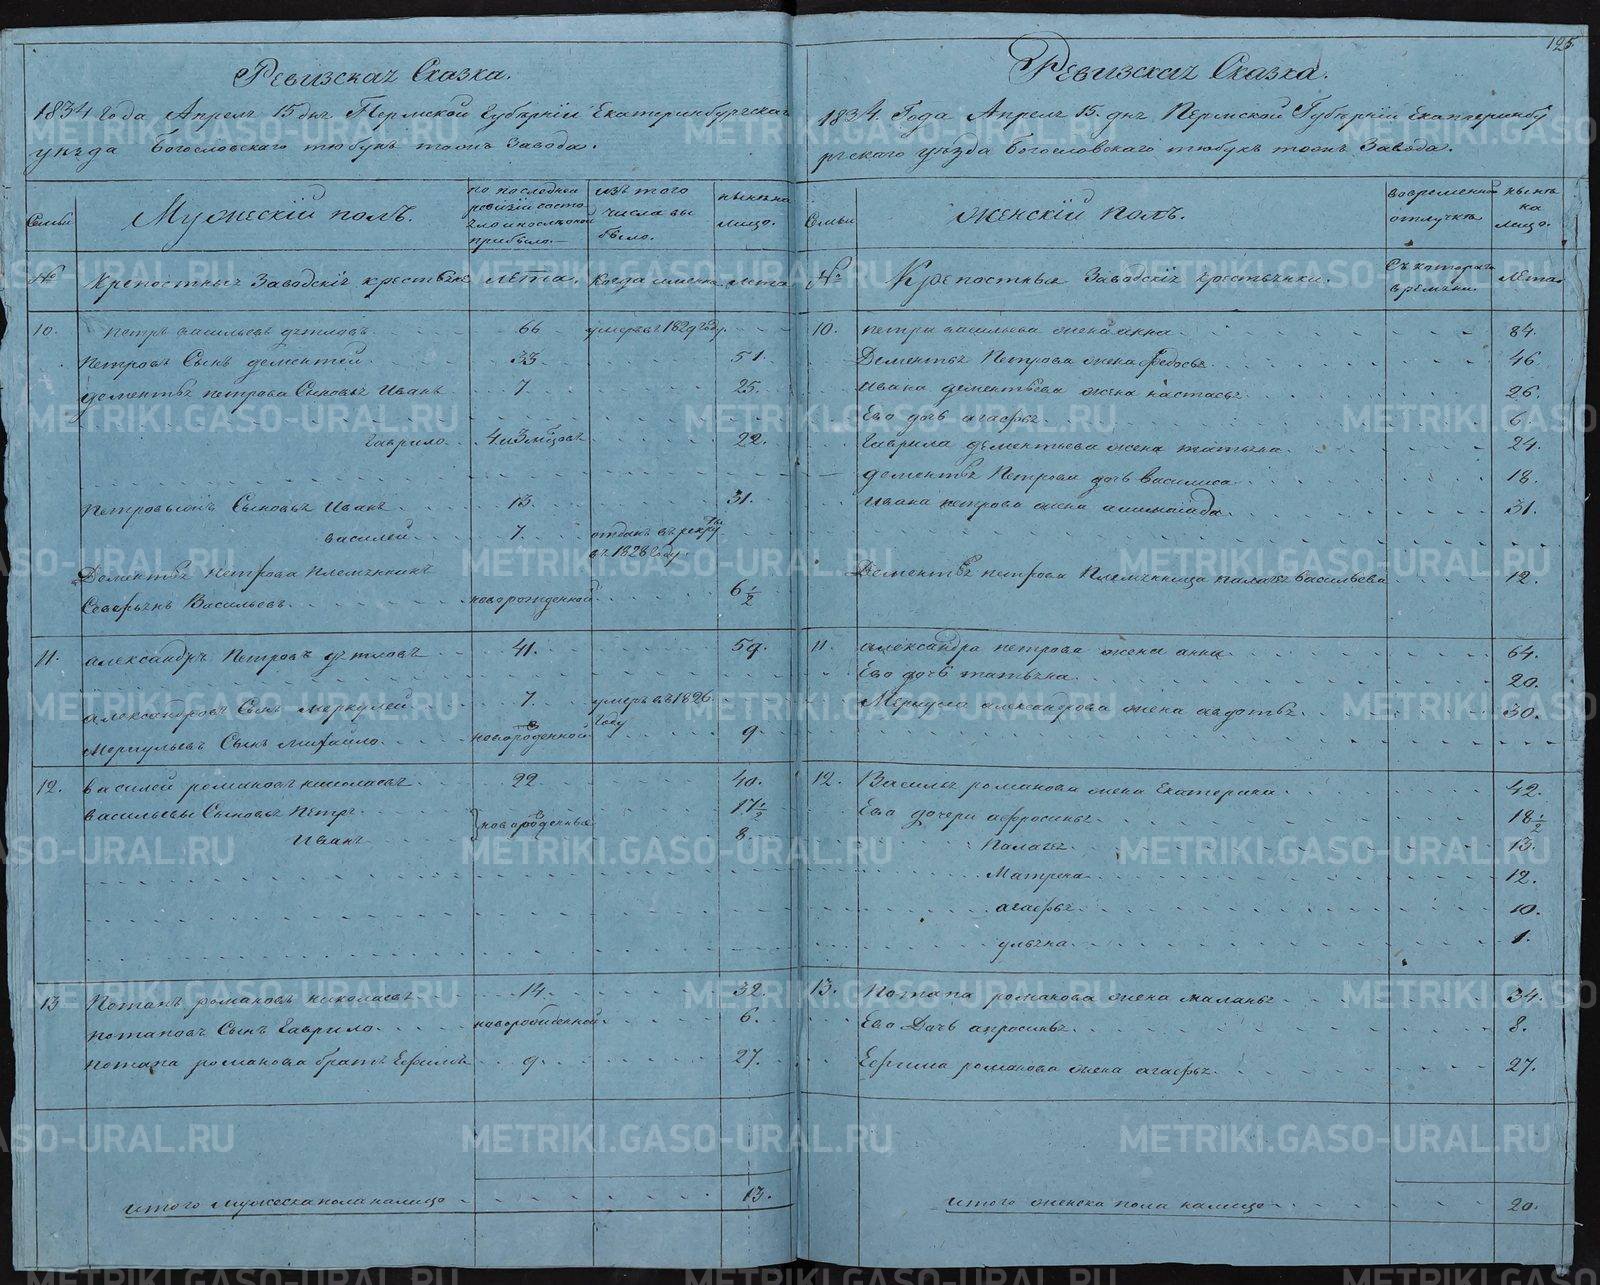 125
Ревизская Сказка.
1834 Года Апреля 15 дня Пермской Губернии Екатеринбургскаго
уезда Богословскаго тюбукъ тожъ Завода.
Семьи
Мужескій полъ.
по последней ревизіи состояло и после оной прибыло.
изъ того числа выбыло.
ныне на лицо.
№
Крепостныя Заводскіе крестьяне
лета.
Когда именно
лета
10. Петръ васильевъ дятловъ 66 умеръ въ 1829 году.
Петровъ Сынъ дементей 33 51.
дементья петрова Сыновья Иванъ 7. 25.
Гаврило 4 и 3 м:цовъ 22.
Петровы Сыновья Иванъ 13. 31.
василей 7. отданъ въ рекруты
въ 1828 Году.
Дементья Петрова Племянникъ
Северьянъ Васильевъ новорожденной 6 1/2
11. александръ Петровъ дятловъ 41. 59.
александровъ Сынъ меркулей 7. умеръ въ 1826
Году
Меркульевъ Сынъ михайло новорожденной 9.
12. василей романовъ николаевъ 22 40.
васильевы Сыновья Петръ 17 1/2
новорожденные
Иванъ 8.
13 Потапъ романовъ николаевъ 14. 32.
потаповъ Сынъ Гаврило новорожденной 6.
потапа романова братъ Ефимъ 9. 27.
итого мужеска пола налицо 13.
Ревизская Сказка.
1834. Года Апреля 15. дня Пермской Губерніи Екатеринбу
ргскаго уезда Богословскаго тюбукъ тожъ Завода.
Семьи
Женскій полъ.
во временной отлучке
ныне на лицо.
№
Крепостныя Заводскіе крестьянки.
Съ котораго времени.
Лета
10. петра васильева жена анна 84.
Дементья Петрова жена Федосья 46
Ивана дементьева жена настасья 26.
Ево дочь агафья 6.
Гаврила дементьева жена татьяна 24.
дементья Петрова дочь василиса 18.
Ивана петрова жена 31.
Дементья петрова Племянница палагея васильева 12.
11. александра петрова жена анна 64.
Ево дочь татьяна 20.
Меркула александрова жена авдотья 30.
12. Василья романова жена Екатерина 42.
Ево дочери афросинья 18 1/2
Палагея 13.
Матрена 12.
агафья 10.
ульяна 1.
13. Потапа романова жена маланья 34.
Ево Дочь апросинья 8.
Ефима романова жена агафья 27.
итого женска пола налицо 20.
METRIKI.GASO-URAL.RU